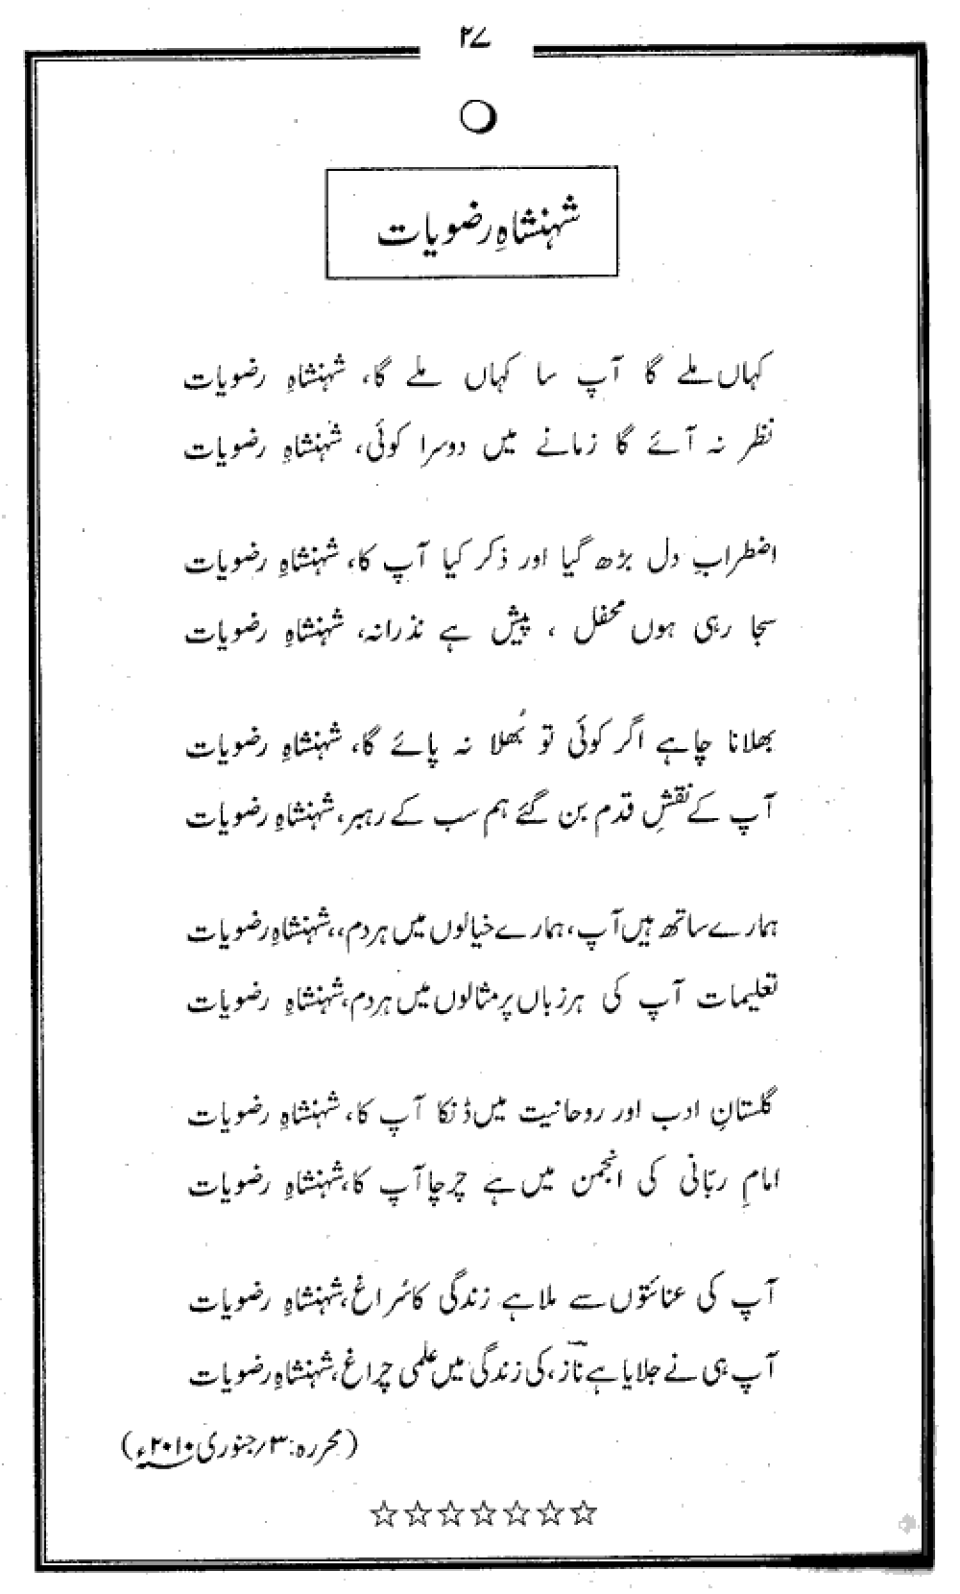 ۲۷
شہنشاہِ رضویات
کہاں ملے گا آپ سا کہاں ملے گا، شہنشاہِ رضویات
نظر نہ آئے گا زمانے میں دوسرا کوئی، شہنشاہِ رضویات
اضطرابِ دل بڑھ گیا اور ذکر کیا آپ کا، شہنشاہِ رضویات
سجا رہی ہوں محفل ، پیش ہے نذرانہ، شہنشاہِ رضویات
بھلانا چاہے اگر کوئی تو بُھلا نہ پائے گا، شہنشاہِ رضویات
آپ کے نقشِ قدم بن گئے ہم سب کے رہبر، شہنشاہِ رضویات
ہمارے ساتھ ہیں آپ، ہمارے خیالوں میں ہر دم،، شہنشاہِ رضویات
تعلیمات آپ کی ہر زباں پر مثالوں میں ہر دم، شہنشاہِ رضویات
گلستانِ ادب اور روحانیت میں ڈنکا آپ کا، شہنشاہِ رضویات
امامِ ربّانی کی انجمن میں ہے چرچا آپ کا، شہنشاہِ رضویات
آپ کی عنائتوں سے ملا ہے زندگی کا سُراغ، شہنشاہِ رضویات
آپ ہی نے جلایا ہے نازؔ، کی زندگی میں علمی چراغ، شہنشاہِ رضویات
(محررہ: ۳؍جنوری ۲۰۱۰ء)
☆☆☆☆☆☆☆